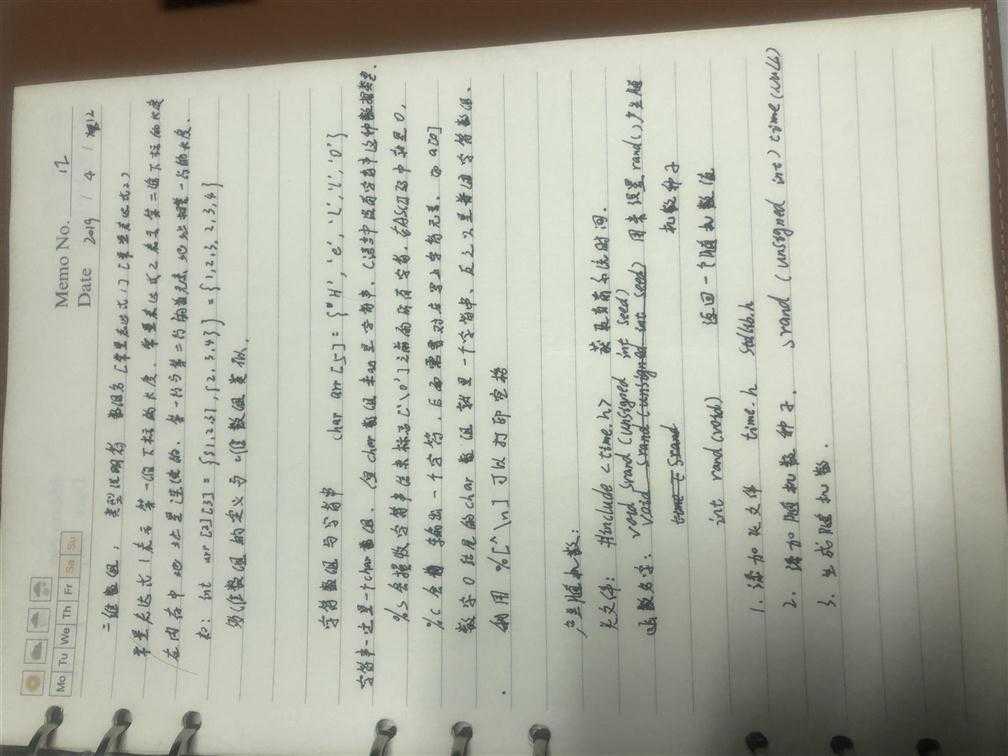 Memo No. 12
Date 2019 / 4 / 12
Mo Tu We Th Fr Sa Su
二维数组: 类型说明符 数组名[常量表达式1][常量表达式2]
常量表达式1表示第一维下标的长度, 常量表达式2表示第二维下标的长度
在内存中地址是连续的, 第一行与第二行的地址相差一行的长度.
如: int arr[2][3] = {{1,2,3},{2,3,4}} = {1,2,3,2,3,4}
多维数组的定义与二维数组类似.
字符数组与字符串
char arr[5] = {'H','e','l','l','o'}
字符串一定是一个char数组, 但char数组未必是字符串, C语言中没有字符串这种数据类型.
%s会输出字符串结束标志['\0']之前的所有字符, 在ASCII码中就是0,
%c会输出一个字符, 后面需要对应写上字符元素, 如a[0]
数字0结尾的char数组就是一个字符串, 反之则是普通字符数组.
利用 %[^\n] 可以打印空格
产生随机数:
头文件: #include <time.h> 获取当前系统时间.
函数名字: void srand(unsigned int seed) 用来设置rand()产生随
void srand(unsigned int seed) 机数种子
int rand(void) 返回一个随机数值
1. 添加头文件 time.h stdlib.h
2. 添加随机数种子. srand (unsigned int) time(NULL)
3. 生成随机数.